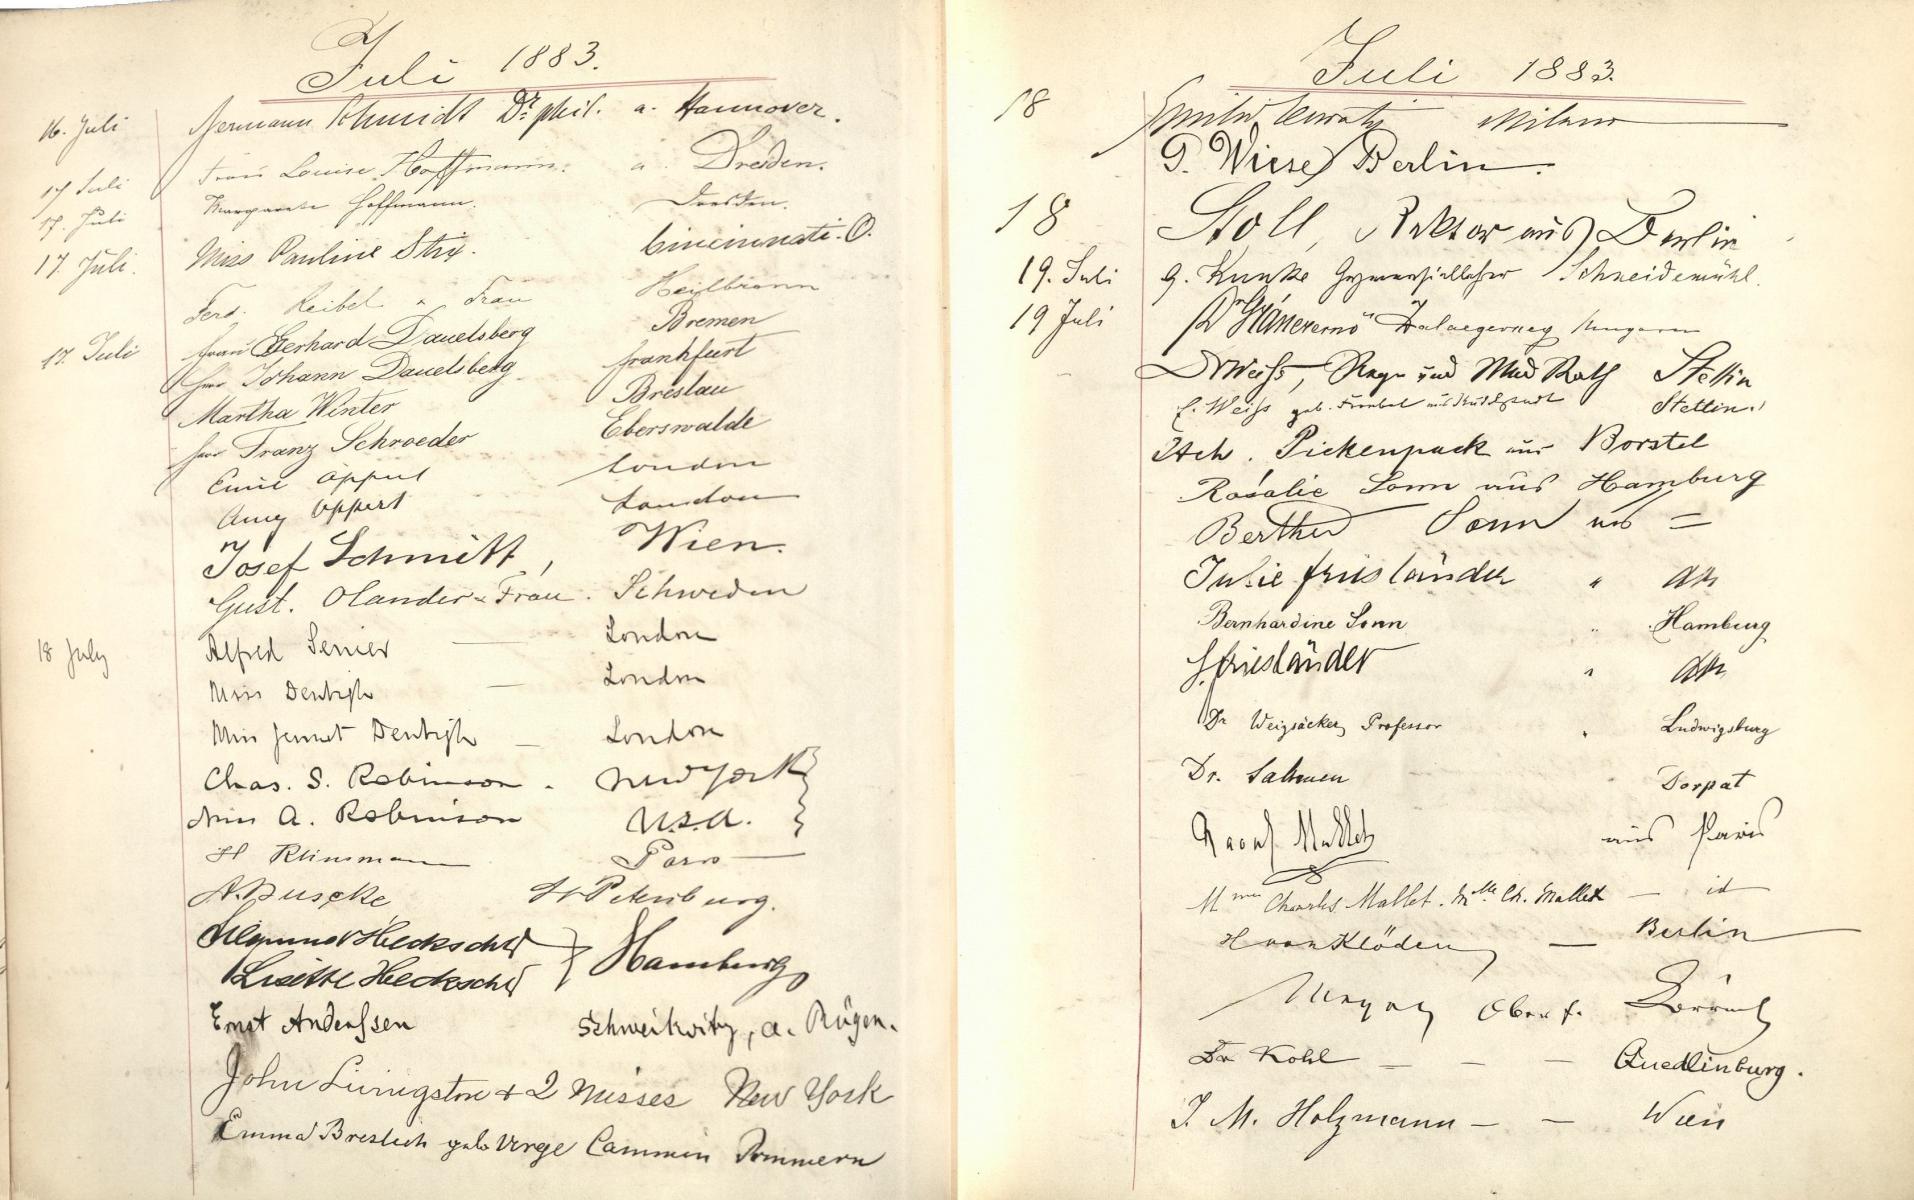 Juli 1883.
16. Juli Hermann Schmidt Dr. phil. a. Hannover.
Frau Louise Hoffmann. a. Dresden.
17 Juli Margarete Hoffmann. Dresden.
17. Juli
17. Juli. Miss Pauline Strix. Cincinnati. O.
Ferd. Reibel u Frau Heilbronn
Frau Gerhard Dauelsberg Bremen
17. Juli Herr Johann Dauelsberg Frankfurt
Martha Winter Breslau
Herr Franz Schroeder Eberswalde
Emil Oppert London
Amy Oppert London
Josef Schmitt, Wien.
Gust. Olander u Frau. Schweden
18 July Alfred Senier — London
Miss Denbigh — London
Miss Jennet Denbigh — London
Chas. S. Robinson. New York
Miss A. Robinson U.S.A.
H Klinsmann Paris
A. Buscke St Petersburg.
Heckscher
Lisette Heckscher Hamburg
Ernst Anderssen a. Rügen.
John Livingston + 2 Misses New York
Emma Breslich geb Verge Cammin Pommern
Juli 1883.
18 Milano
P. Wiese Berlin.
18 Stoll, Rektor aus Berlin
19. Juli G. Kunke Gymnasiallehrer Schneidemühl.
19 Juli Dr Ungarn
Dr Weiss, Regr und Med Rath Stettin
E. Weiss geb. Stettin.
Hch. Pickenpack aus Borstel
Rosalie Sonn aus Hamburg
Bertha Sonn aus =
Julie Friesländer " do
Bernhardine Sonn " Hamburg
J. Friesländer " do
Dr Weizsäcker, Professor " Ludwigsburg
Dr. Salmen Dorpat
Raoul Mallet aus Paris
Mme Charles Mallet. Mlle Ch. Mallet — id
H von Klöden — Berlin
Dr Kohl — — — Quedlinburg.
J. M. Holzmann — — Wien